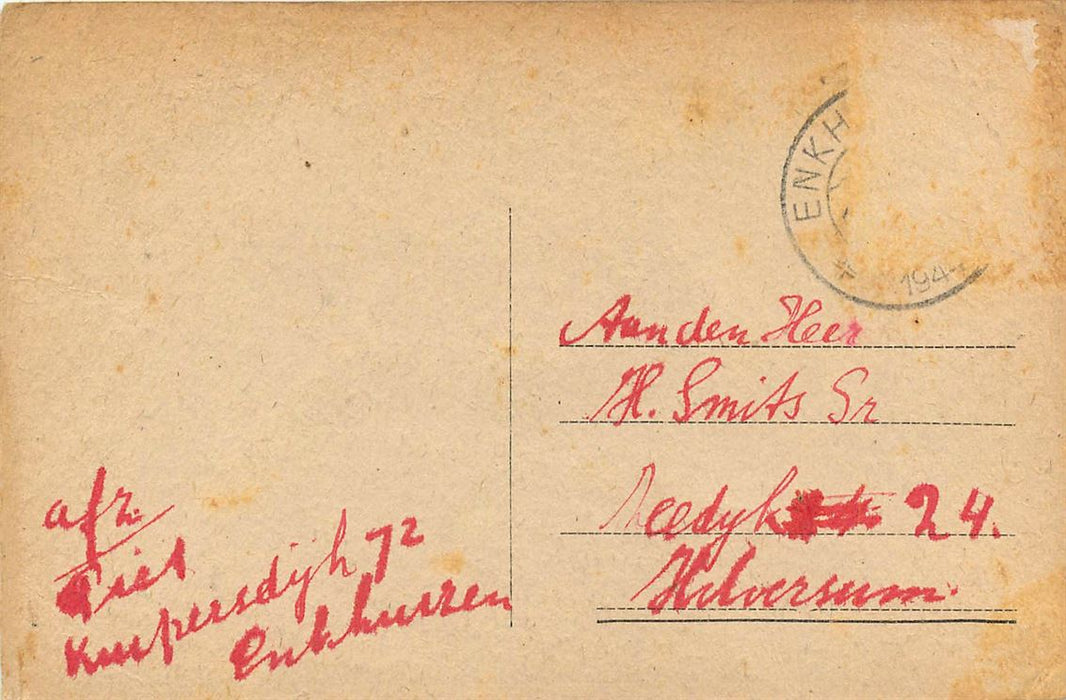 ENKH
194
Aan den Heer
H. Smits Sr
24.
Hilversum.
afz.
Piet
Kuipersdijk 72
Enkhuizen